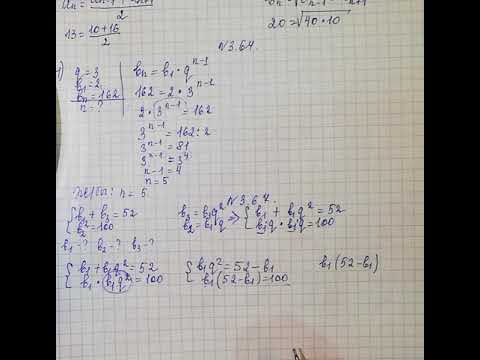 13 = 10+16 / 2
20 = √40·10
№3.64.
1) q = 3
b₁ = 2
bₙ = 162
n = ?
bₙ = b₁ · qⁿ⁻¹
162 = 2 · 3ⁿ⁻¹
2 · 3ⁿ⁻¹ = 162
3ⁿ⁻¹ = 162 : 2
3ⁿ⁻¹ = 81
3ⁿ⁻¹ = 3⁴
n-1 = 4
n = 5
n = 5
№3.67.
b₁ + b₃ = 52
b₂² = 100
b₁ - ? b₂ - ? b₃ - ?
b₃ = b₁q²
b₂ = b₁q
⇒ { b₁ + b₁q² = 52
b₁q · b₁q = 100
{ b₁ + b₁q² = 52
b₁ · b₁q² = 100
{ b₁q² = 52 - b₁
b₁(52 - b₁) = 100
b₁(52 - b₁)